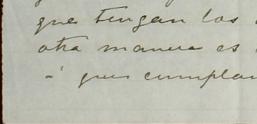 que tengan los
otra manera es
á que cumplan